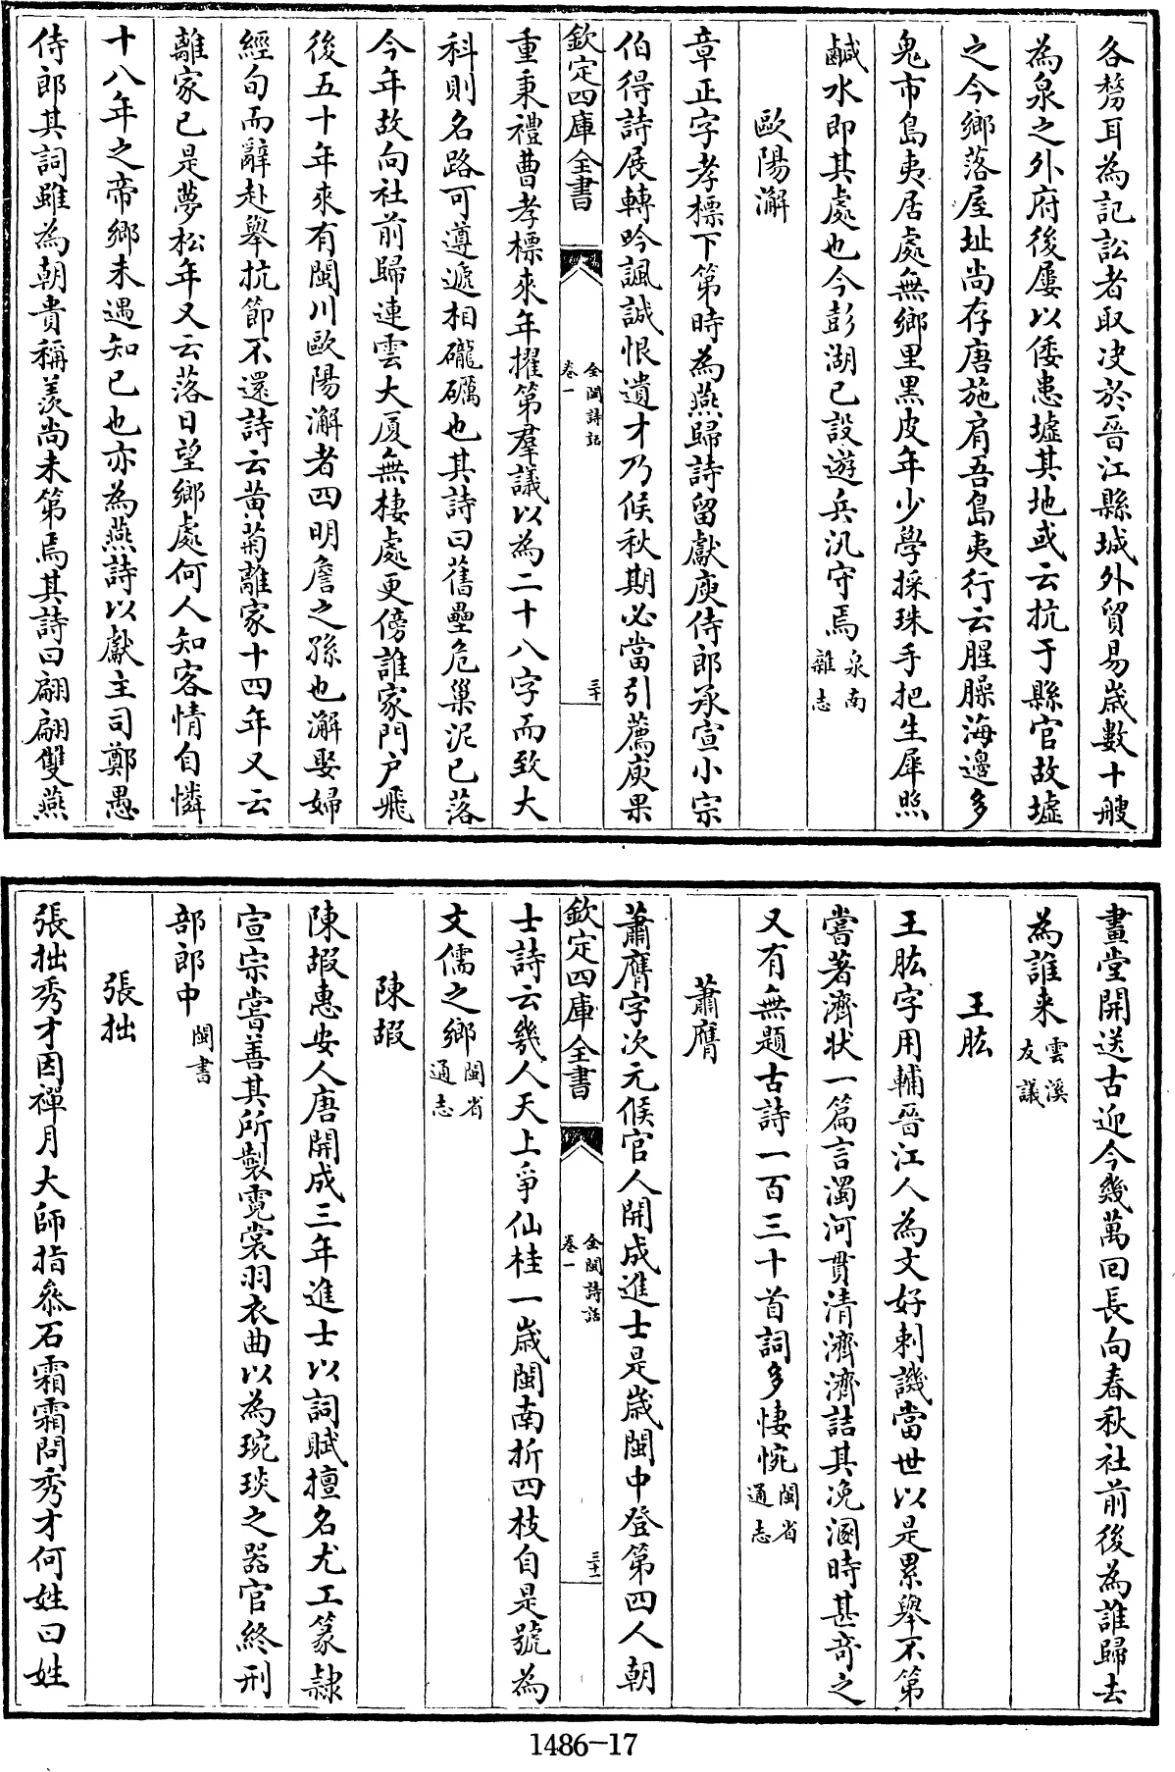 各勝耳為記訟者取决於晉江縣城外貿易歲數十艘
為泉之外府後屢以倭患墟其地或云抗于縣官故墟
之今鄉落屋址尚存唐施肩吾島夷行云腥臊海邊多
鬼市島夷居處無鄉里黑皮年少學採珠手把生犀照
鹹水即其處也今彭湖已設遊兵汛守焉泉南雜志
歐陽澥
章正字孝標下第時為燕歸詩留獻庾侍郎承宣小宗
伯得詩展轉吟諷誠恨遺才乃候秋期必當引薦庾果
欽定四庫全書 全閩詩話 卷一 三十
重秉禮曹孝標來年擢第羣議以為二十八字而致大
科則名路可遵遞相礲礪也其詩曰舊壘危巢泥已落
今年故向社前歸連雲大厦無棲處更傍誰家門户飛
後五十年來有閩川歐陽澥者四明詹之孫也澥娶婦
經旬而辭赴舉抗節不還詩云黄菊離家十四年又云
離家已是夢松年又云落日望鄉處何人知客情自憐
十八年之帝鄉未遇知己也亦為燕詩以獻主司鄭愚
侍郎其詞雖為朝貴稱羨尚未第焉其詩曰翩翩雙燕
畫堂開送古迎今幾萬回長向春秋社前後為誰歸去
為誰来雲溪友議
王肱
王肱字用輔晉江人為文好刺譏當世以是累舉不第
嘗著濟狀一篇言濁河貫清濟濟詰其浼溷時甚奇之
又有無題古詩一百三十首詞多悽惋閩省通志
蕭膺
蕭膺字次元候官人開成進士是歲閩中登第四人朝
欽定四庫全書 全閩詩話 卷一 三十一
士詩云幾人天上爭仙桂一歲閩南折四枝自是號為
文儒之鄉閩省通志
陳嘏
陳嘏惠安人唐開成三年進士以詞賦擅名尤工篆隷
宣宗嘗善其所製霓裳羽衣曲以為琬琰之器官終刑
部郎中閩書
張拙
張拙秀才因禪月大師指叅石霜霜問秀才何姓曰姓
1486-17